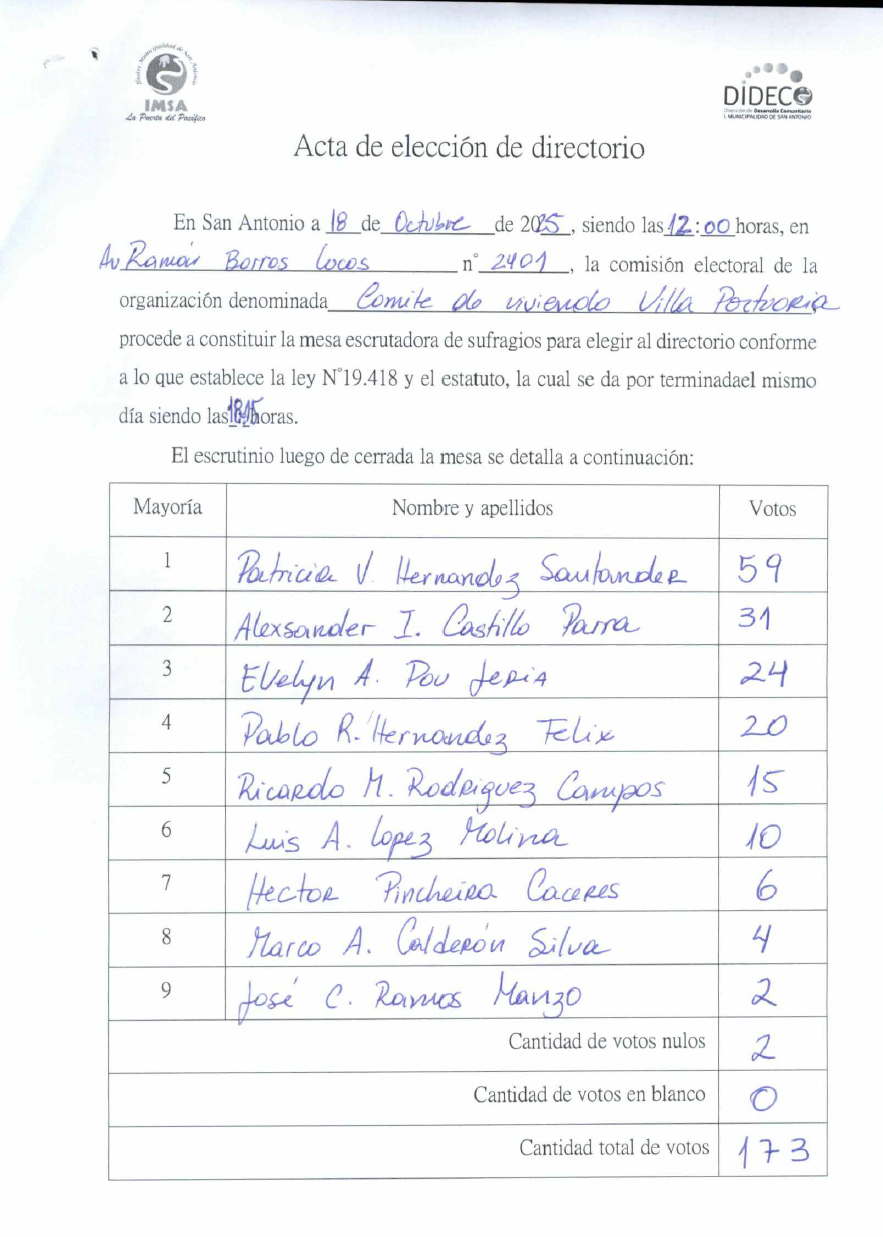 Ilustre Municipalidad de San Antonio
IMSA
La Puerta del Pacífico
DIDECO
Dirección de Desarrollo Comunitario
I. MUNICIPALIDAD DE SAN ANTONIO
Acta de elección de directorio
En San Antonio a 18 de Octubre de 2025, siendo las 12:00 horas, en
Av Ramón Barros Lucos n° 2401, la comisión electoral de la
organización denominada Comite de vivienda Villa Portuaria
procede a constituir la mesa escrutadora de sufragios para elegir al directorio conforme
a lo que establece la ley N°19.418 y el estatuto, la cual se da por terminadael mismo
día siendo las 18:15 horas.
El escrutinio luego de cerrada la mesa se detalla a continuación:
Mayoría Nombre y apellidos Votos
1 Patricia V. Hernandez Santander 59
2 Alexsander I. Castillo Parra 31
3 Evelyn A. Pou Jeria 24
4 Pablo R. Hernandez Felix 20
5 Ricardo M. Rodriguez Campos 15
6 Luis A. Lopez Molina 10
7 Hector Pincheira Caceres 6
8 Marco A. Calderón Silva 4
9 José C. Ramos Manzo 2
Cantidad de votos nulos 2
Cantidad de votos en blanco 0
Cantidad total de votos 173